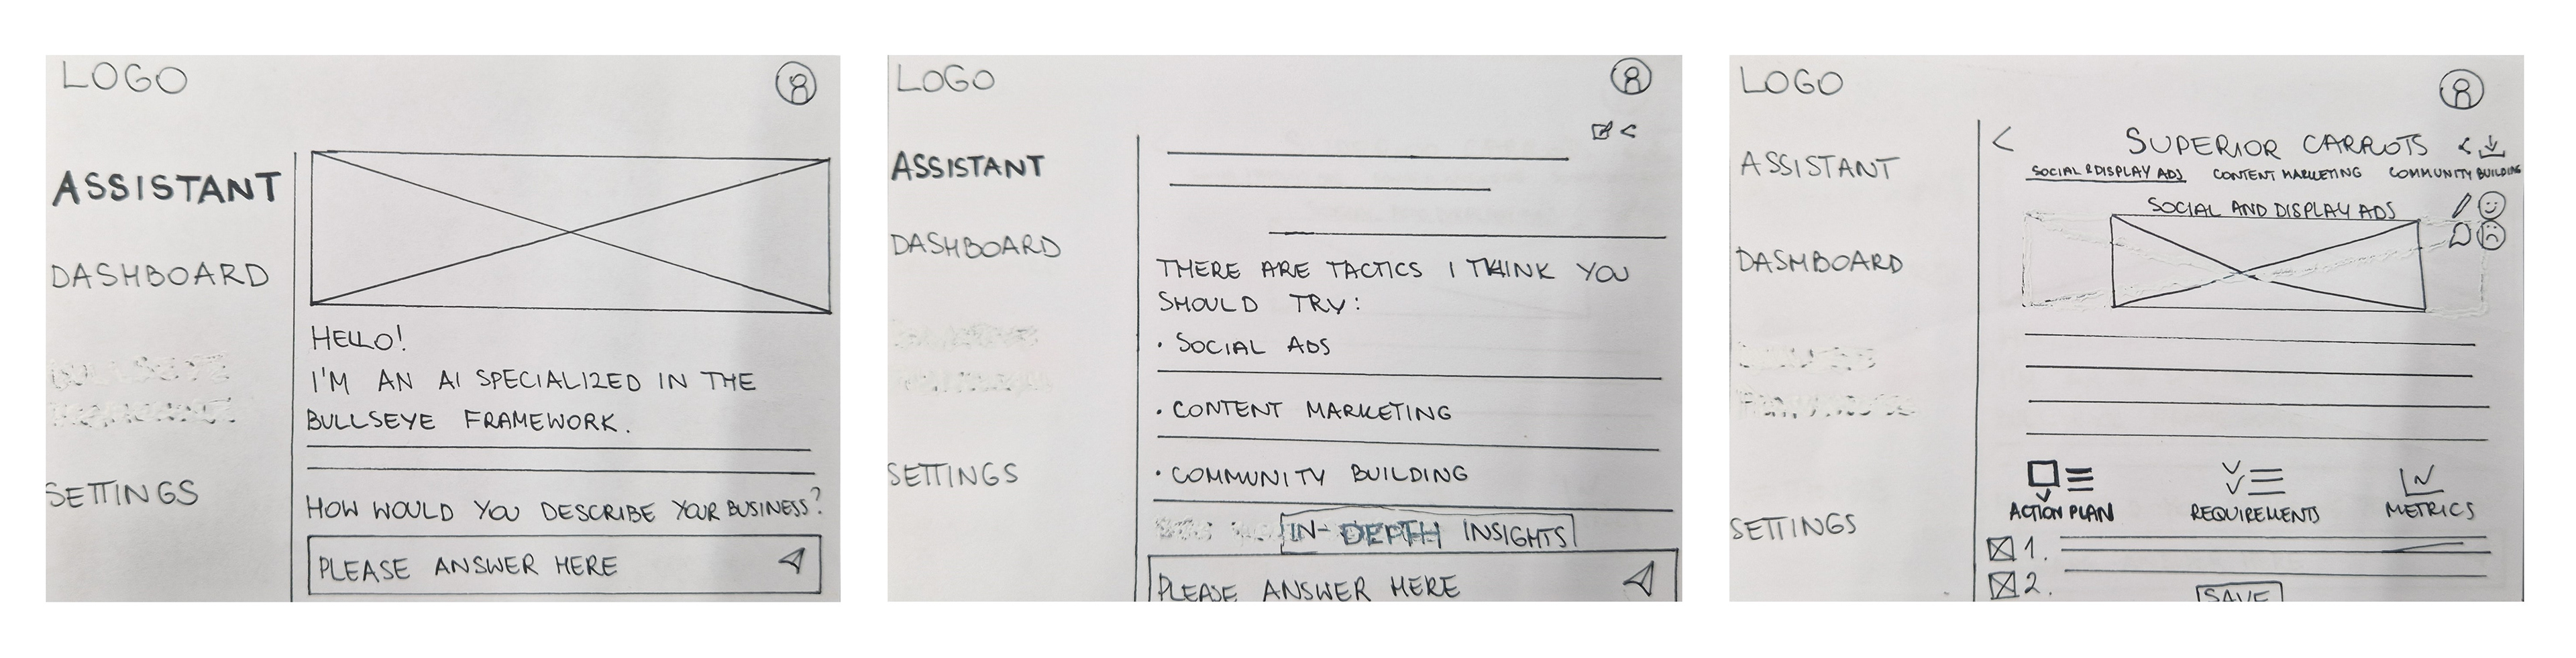 LOGO
ASSISTANT
DASHBOARD
SETTINGS
HELLO!
I'M AN AI SPECIALIZED IN THE
BULLSEYE FRAMEWORK.
HOW WOULD YOU DESCRIBE YOUR BUSINESS?
PLEASE ANSWER HERE
LOGO
ASSISTANT
DASHBOARD
SETTINGS
THERE ARE TACTICS I THINK YOU
SHOULD TRY:
· SOCIAL ADS
· CONTENT MARKETING
· COMMUNITY BUILDING
IN-DEPTH INSIGHTS
PLEASE ANSWER HERE
LOGO
ASSISTANT
DASHBOARD
SETTINGS
SUPERIOR CARROTS
SOCIAL & DISPLAY ADS CONTENT MARKETING COMMUNITY BUILDING
SOCIAL AND DISPLAY ADS
ACTION PLAN REQUIREMENTS METRICS
1.
2.
SAVE